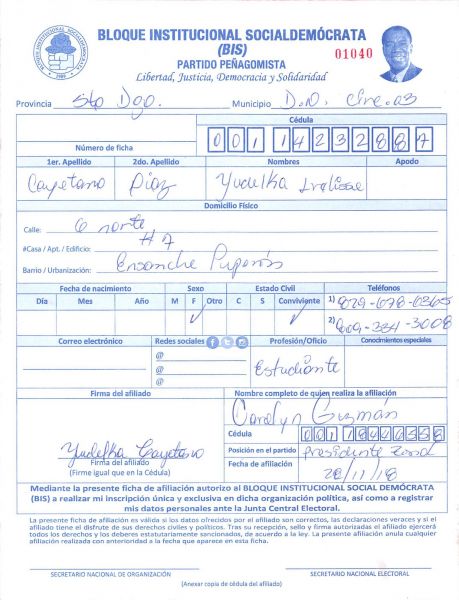 BLOQUE INSTITUCIONAL SOCIALDEMÓCRATA
(BIS)
PARTIDO PEÑAGOMISTA
01040
Libertad, Justicia, Democracia y Solidaridad
Provincia Sto Dgo. Municipio D.N. Circ. 03
Cédula
Número de ficha
1er. Apellido 2do. Apellido Nombres Apodo
Cayetano Díaz Yudelka
Domicilio Físico
Calle: 6 norte
#Casa / Apt. / Edificio: #7
Barrio / Urbanización: Ensanche
Fecha de nacimiento Sexo Estado Civil Teléfonos
Día Mes Año M F Otro C S Conviviente
1) 829-678-6365
2) 809-334-3008
Correo electrónico Redes sociales Profesión/Oficio Conocimientos especiales
@
@
@
Estudiante
Firma del afiliado Nombre completo de quien realiza la afiliación
Carolyn Guzmán
Cédula
Yudelka Cayetano
Posición en el partido Presidente Zonal
Firma del afiliado
(Firme igual que en la Cédula)
Fecha de afiliación 28/11/18
Mediante la presente ficha de afiliación autorizo al BLOQUE INSTITUCIONAL SOCIAL DEMÓCRATA
(BIS) a realizar mi inscripción única y exclusiva en dicha organización política, así como a registrar
mis datos personales ante la Junta Central Electoral.
La presente ficha de afiliación es válida si los datos ofrecidos por el afiliado son correctos, las declaraciones veraces y si el
afiliado tiene el disfrute de sus derechos civiles y políticos. Tras su recepción, sello y firma autorizadas el afiliado ejercerá
todos los derechos y los deberes estatutariamente sancionados, de acuerdo a la ley. La presente afiliación anula cualquier
afiliación realizada con anterioridad a la fecha que aparece en esta ficha.
SECRETARIO NACIONAL DE ORGANIZACIÓN SECRETARIO NACIONAL ELECTORAL
(Anexar copia de cédula del afiliado)